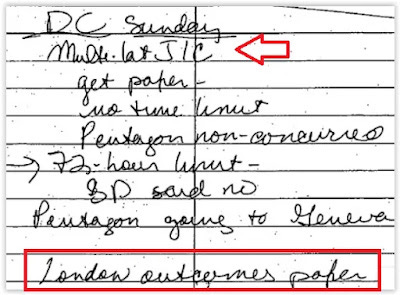 DC Sunday
Multi-lat JIC
get paper -
no time limit
Pentagon non-concurred
→ 72-hour limit -
SP said no
Pentagon going to Geneva
London outcomes paper